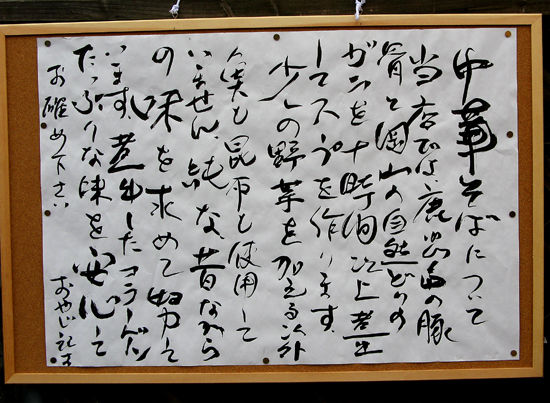 中華そばについて
当店では、鹿児島の豚
骨と岡山の自然どりの
ガラを十時間以上煮出
してスープを作ります。
少しの野菜を加える以外
人実も昆布も使用して
いません、純な昔ながら
の味を求めて努力して
います、煮出したコラーゲン
たっぷりな味を安心して
お確め下さい
おやじ記す